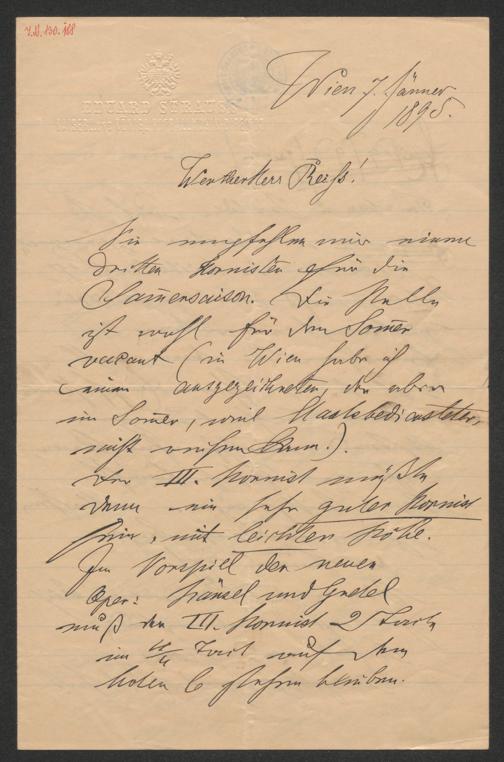 I.N. 130.188
EDUARD STRAUSS
Wien 7. Jänner
1895.
Werther Herr Reiss!
Sie empfehlen mir einen
dritten Hornisten für die
Somersaison. Die Stelle
ist wohl für den Somer
vacant (in Wien habe ich
einen ausgezeichneten, der aber
im Somer, weil Staatsbediensteter,
nicht reisen kann.).
Der III. Hornist müßte
dann ein sehr guter Hornist
sein, mit leichter Höhe.
Im Vorspiel der neuen
Oper: Hänsel und Gretel
muß der III. Hornist 2 Takte
im 4/4 Takt auf dem
hohen C stehen bleiben.